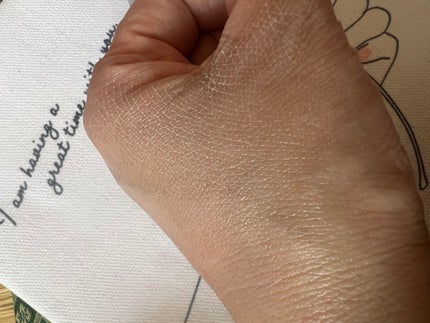 I am having a
great time with you